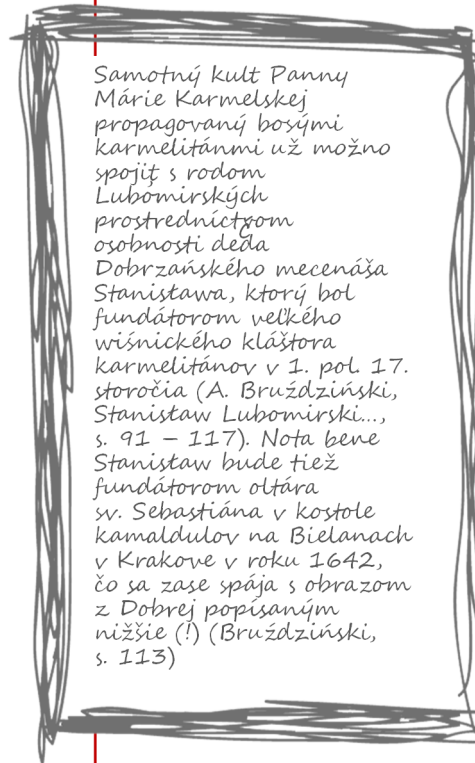 Samotný kult Panny
Márie Karmelskej
propagovaný bosými
karmelitánmi už možno
spojiť s rodom
Lubomirských
prostredníctvom
osobnosti deda
Dobrzańského mecenáša
Stanisława, ktorý bol
fundátorom veľkého
wiśnického kláštora
karmelitánov v 1. pol. 17.
storočia (A. Bruździński,
Stanisław Lubomirski...,
s. 91 – 117). Nota bene
Stanisław bude tiež
fundátorom oltára
sv. Sebastiána v kostole
kamaldulov na Bielanach
v Krakove v roku 1642,
čo sa zase spája s obrazom
z Dobrej popísaným
nižšie (!) (Bruździński,
s. 113)